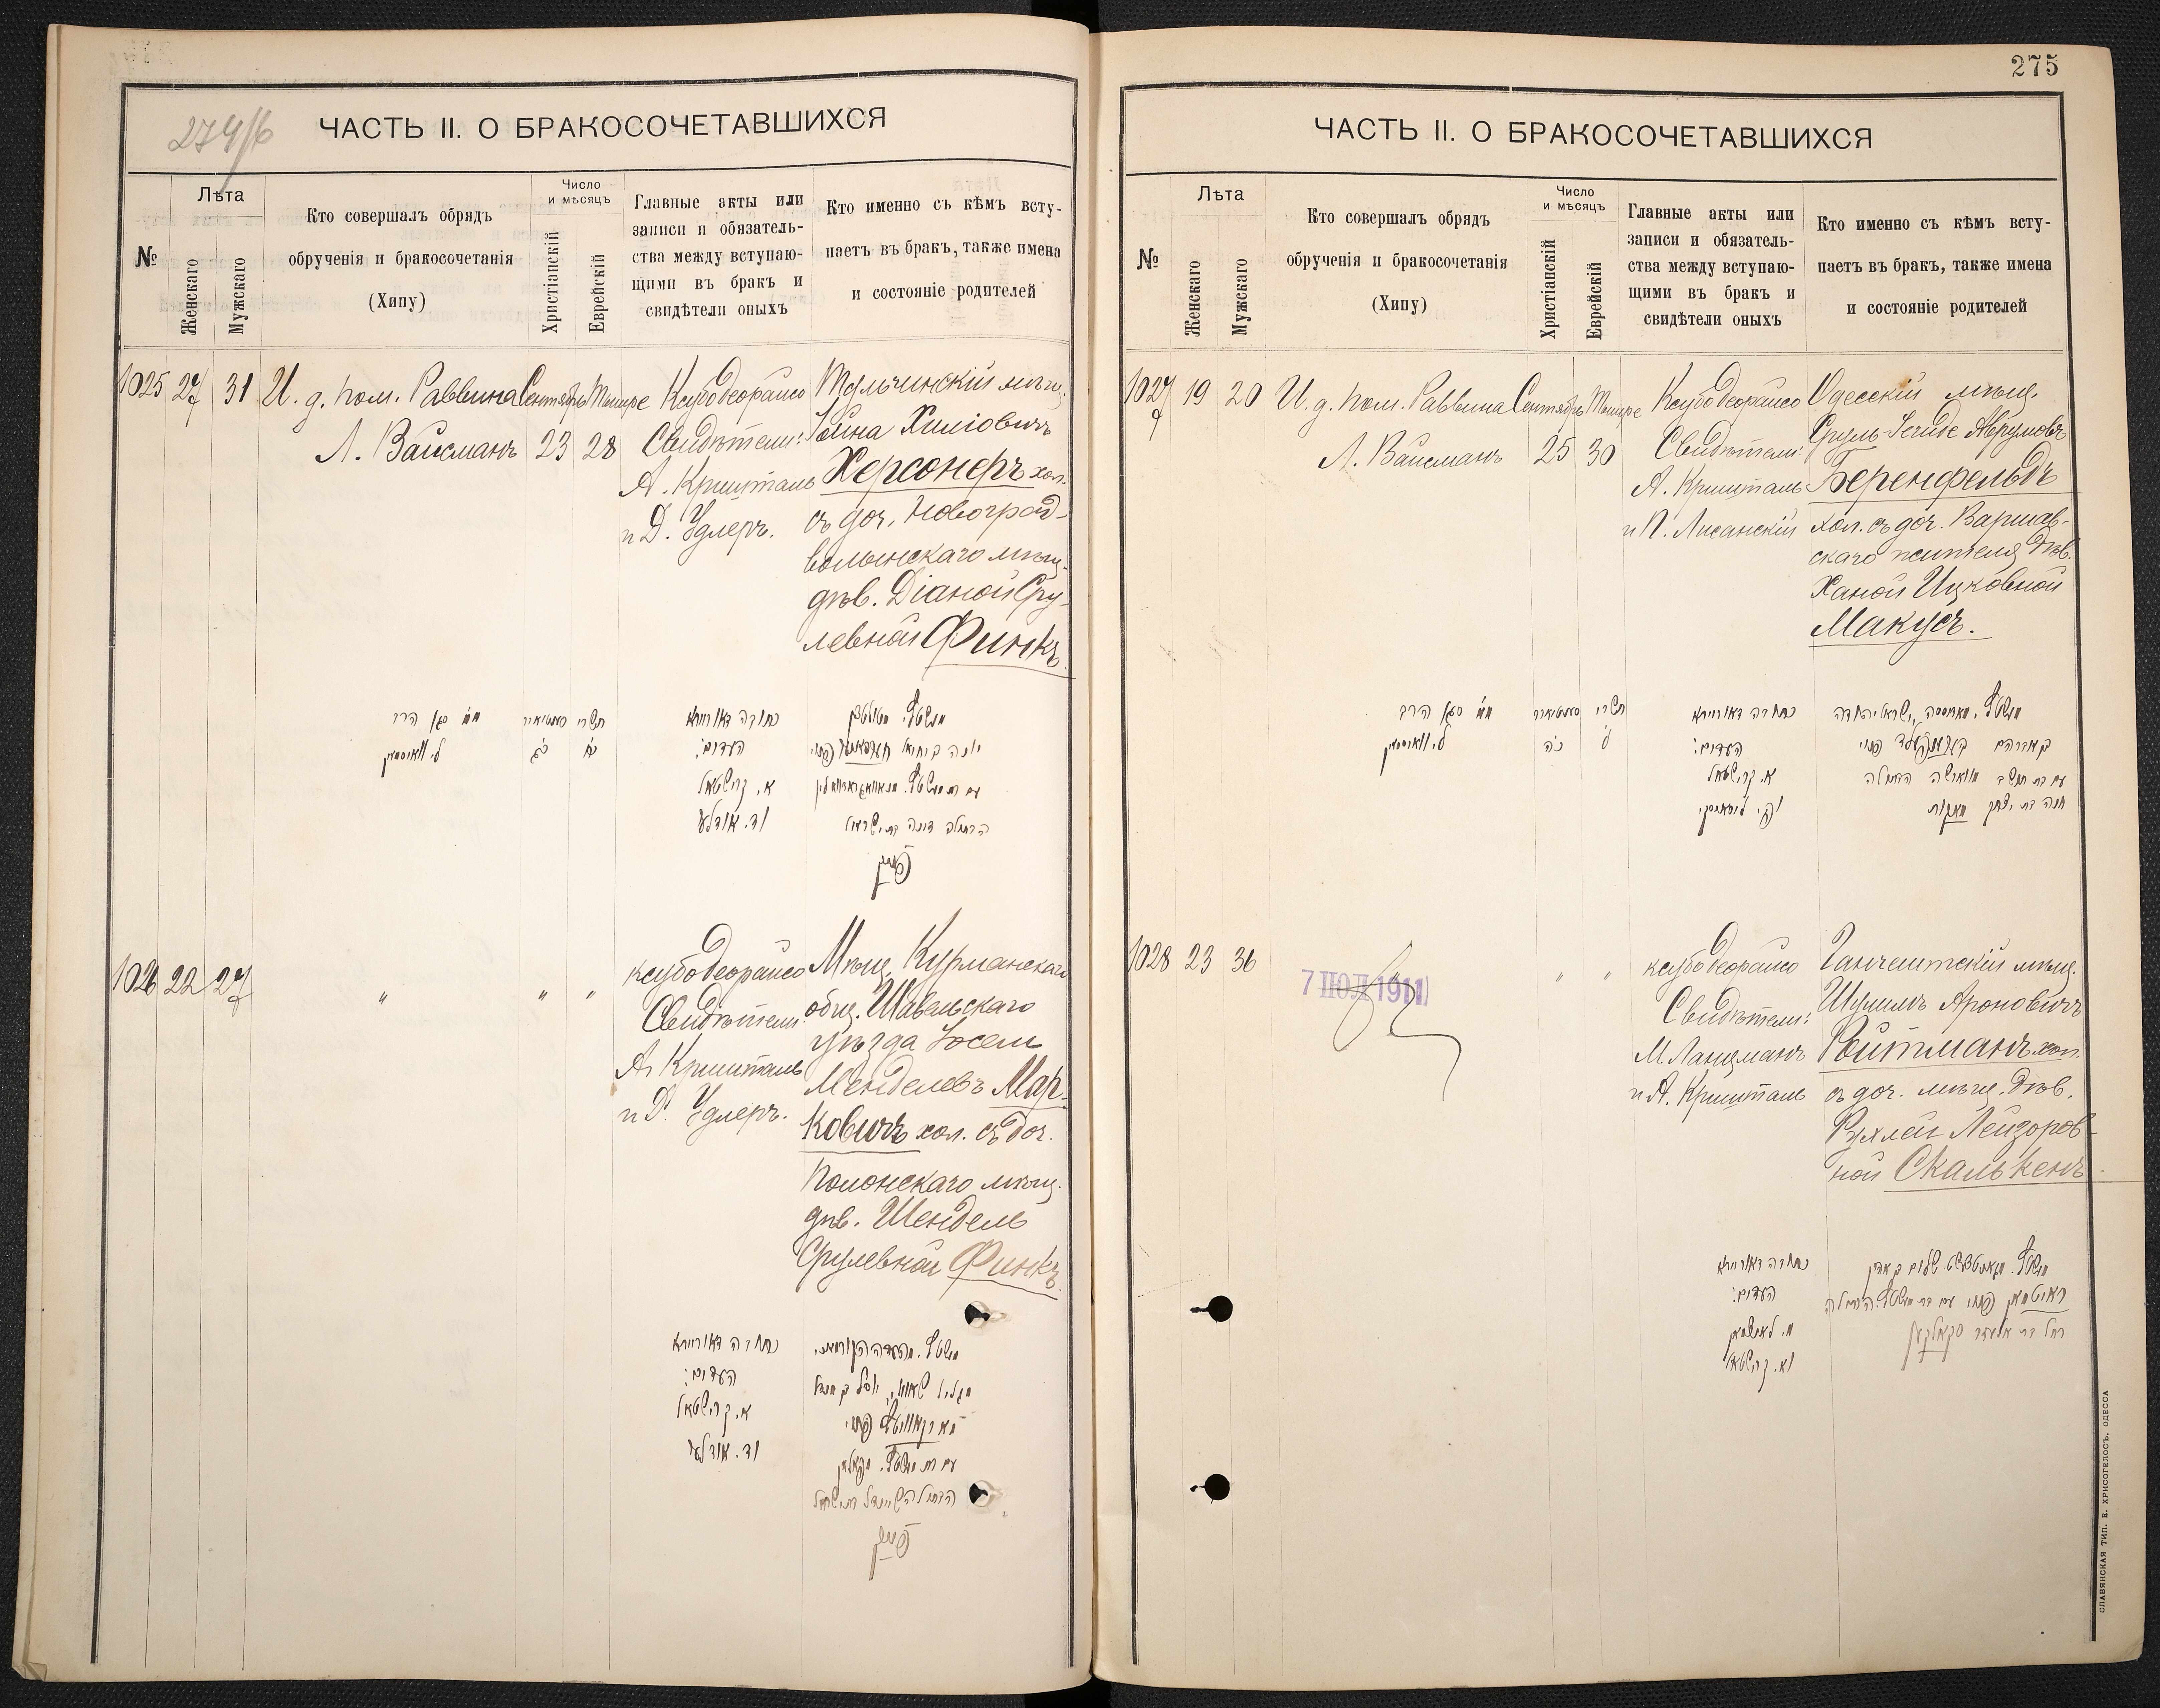 274/б
ЧАСТЬ II. О БРАКОСОЧЕТАВШИХСЯ
№
Лѣта
Женскаго
Мужскаго
Кто совершалъ обрядъ
обрученія и бракосочетанія
(Хипу)
Число
и мѣсяцъ
Христіанскій
Еврейскій
Главные акты или
записи и обязатель-
ства между вступаю-
щими въ бракъ и
свидѣтели оныхъ
Кто именно съ кѣмъ всту-
паетъ въ бракъ, также имена
и состояніе родителей
1025 27 31
И. д. пом. Раввина
Л. Вайсманъ
Сентябрь
23
Тишре
28
Ксубо деорайсо
Свидѣтели:
А. Кришталь
и Д. Удлеръ.
Тульчинскій мѣщ.
Іойна Хиліовичъ
Херсонеръ хол.
съ доч. Новоград-
волынскаго мѣщ.
дѣв. Діаной Сру-
левной Финкъ
תשרי
כח
כתובה דאורייתא
העדים:
א. קרישטאל
וד. אודלער
פינק
1026 22 27
" " "
Ксубо деорайсо
Свидѣтели:
А. Кришталь
и Д. Удлеръ.
Мѣщ. Курманскаго
общ. Шавельскаго
уѣзда Іосель
Менделевъ Мар-
ковичъ хол. съ доч.
Полонскаго мѣщ.
дѣв. Шендель
Срулевной Финкъ
כתובה דאורייתא
העדים:
א. קרישטאל
וד. אודלער
פינק
275
ЧАСТЬ II. О БРАКОСОЧЕТАВШИХСЯ
№
Лѣта
Женскаго
Мужскаго
Кто совершалъ обрядъ
обрученія и бракосочетанія
(Хипу)
Число
и мѣсяцъ
Христіанскій
Еврейскій
Главные акты или
записи и обязатель-
ства между вступаю-
щими въ бракъ и
свидѣтели оныхъ
Кто именно съ кѣмъ всту-
паетъ въ бракъ, также имена
и состояніе родителей
1027 19 20
И. д. пом. Раввина
Л. Вайсманъ
Сентябрь
25
Тишре
30
Ксубо деорайсо
Свидѣтели:
А. Кришталь
и П. Лисанскій
Одесскій мѣщ.
Сруль-Іегиде Аврумовъ
Беренфельдъ
хол. съ доч. Варшав-
скаго жителя дѣв.
Ханой Ицковной
Макусъ.
תשרי
ל
כתובה דאורייתא
העדים:
א. קרישטאל
ופ. ליסאנסקי
חנה בת יצחק מאקוס
1028 23 36
7 ІЮЛ 1911
" "
Ксубо деорайсо
Свидѣтели:
М. Ланцманъ
и А. Кришталь
Ганчештскій мѣщ.
Шулимъ Ароновичъ
Ройтманъ хол.
съ доч. мѣщ. дѣв.
Рухлей Лейзоров-
ной Скалькенъ
כתובה דאורייתא
העדים:
מ. לאנצמאן
וא. קרישטאל
רחל בת אלעזר סקאלקען
СЛАВЯНСКАЯ ТИП. Е. ХРИСОГЕЛОСЪ, ОДЕССА